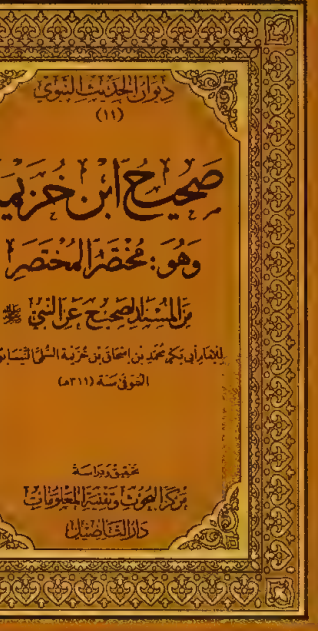 ديوان الحديث النبوي
(١١)
صحيح ابن خزيمة
وهو: مختصر المختصر
من المسند الصحيح عن النبي ﷺ
للإمام أبي بكر محمد بن إسحاق بن خزيمة السلمي النيسابوري
المتوفى سنة (٣١١هـ)
تحقيق ودراسة
مركز البحوث وتقنية المعلومات
دار التأصيل